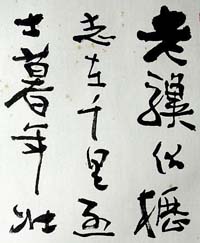 老驥伏櫪
志在千里烈
士暮年壯